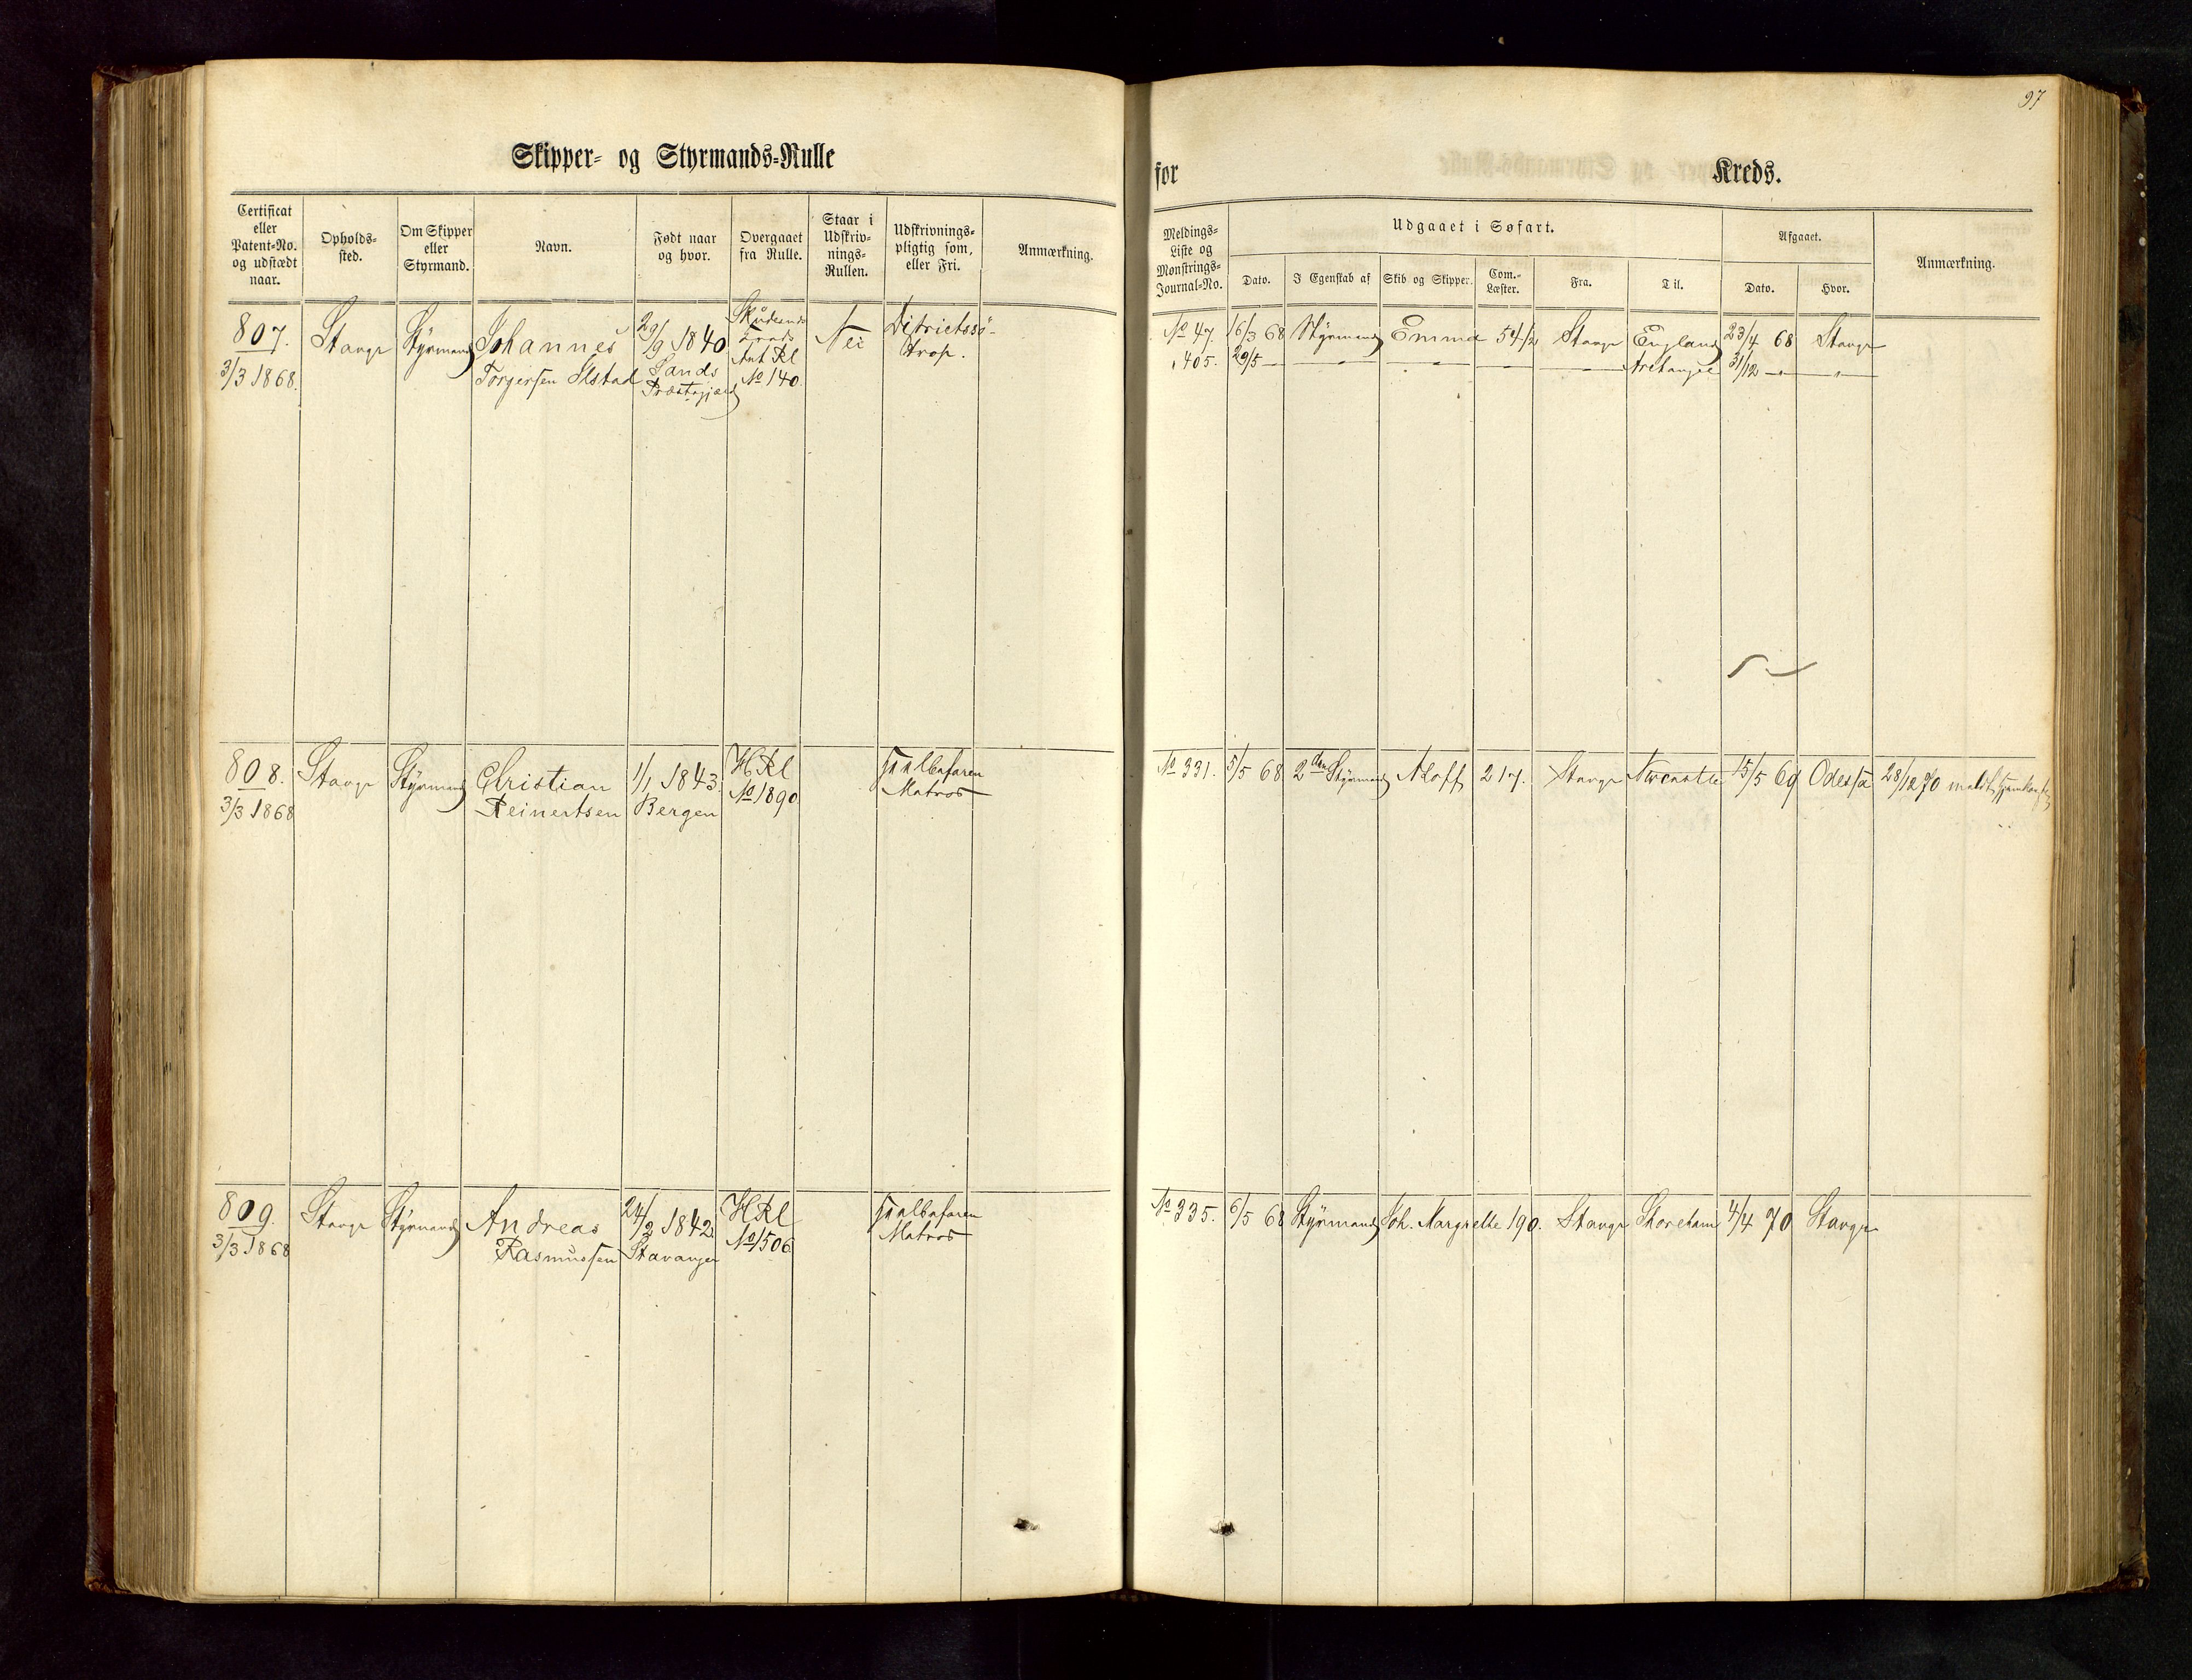 97
Skipper- og Styrmands-Rulle
for Kreds.
Certificat eller Patent-No. og udstædt naar.
Opholds-sted.
Om Skipper eller Styrmand.
Navn.
Født naar og hvor.
Overgaaet fra Rulle.
Staar i Udskriv-nings-Rullen.
Udskrivnings-pligtig som, eller Fri.
Anmærkning.
Meldings-Liste og Mønstrings-Journal-No.
Udgaaet i Søfart.
Dato.
I Egenskab af
Skib og Skipper.
Com.-Læster.
Fra.
Til.
Afgaaet.
Dato.
Hvor.
Anmærkning.
807. Stavgr Styrmand Johannes 29/9 1840 Nei
3/3 1868. Torgersen Ilstad Sands Præstegjæld No 140
No 47. 16/3 68 Styrmand Emma 54 1/2 Stavgr England 23/4 68 Stavgr
" 405. 29/5 — — — — — Archangel 31/12 — " — " —
808. Stavgr Styrmand Christian 1/1 1843. HRl Halbefaren
3/3 1868 Reinertsen Bergen No 1890 Matros
No 331. 5/5 68 2den Styrmand Aloff 217. Stavgr Newcastle 15/5 69 Odessa 28/12 70
809. Stavgr Styrmand Andreas 24/2 1842. HRl Halbefaren
3/3 1868 Rasmussen Stavanger No 1506 Matros
No 335. 6/5 68 Styrmand Joh. Margrethe 190. Stavgr Shoreham 4/4 70 Stavgr